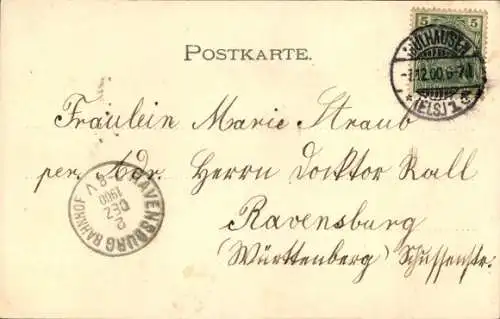 5
MÜLHAUSEN
12.00.6-7N
*(ELS)1*
POSTKARTE.
Fräulein Marie Straub
per. Adr. Herrn Doktor Rall
Ravensburg
(Württenberg) Schussenstr.
RAVENSBURG BAHNHOF
2
DEZ
1900